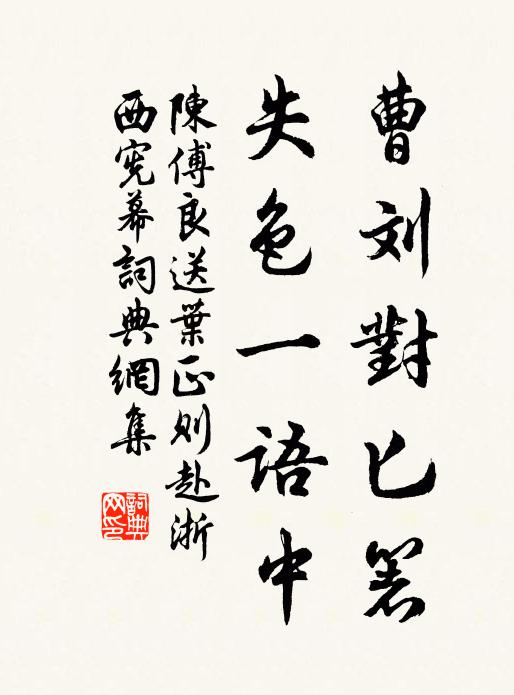 曹刘對匕箸
失色一語中
陳傅良送葉正则赴浙
西宪幕詞典網集
詞典网印